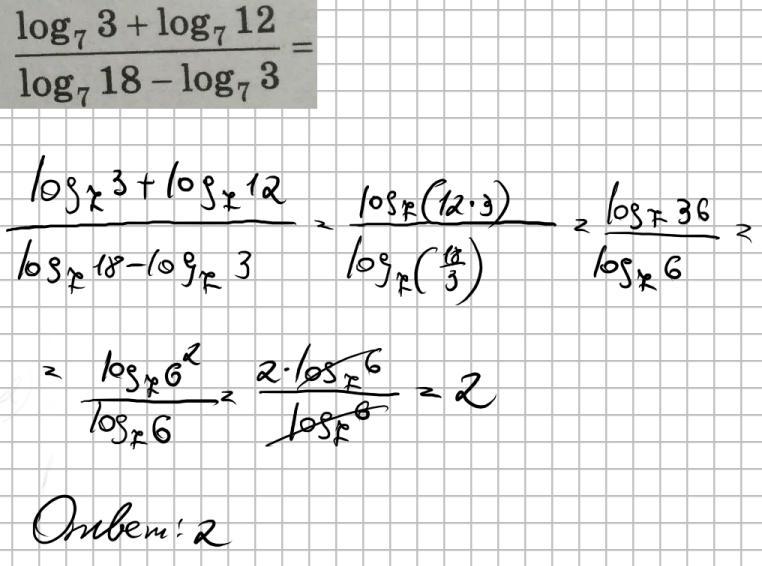 (log₇ 3 + log₇ 12) / (log₇ 18 − log₇ 3) =
(log₇ 3 + log₇ 12) / (log₇ 18 − log₇ 3) = log₇(12·3) / log₇(18/3) = log₇ 36 / log₇ 6 =
= log₇ 6² / log₇ 6 = 2·log₇ 6 / log₇ 6 = 2
Ответ: 2